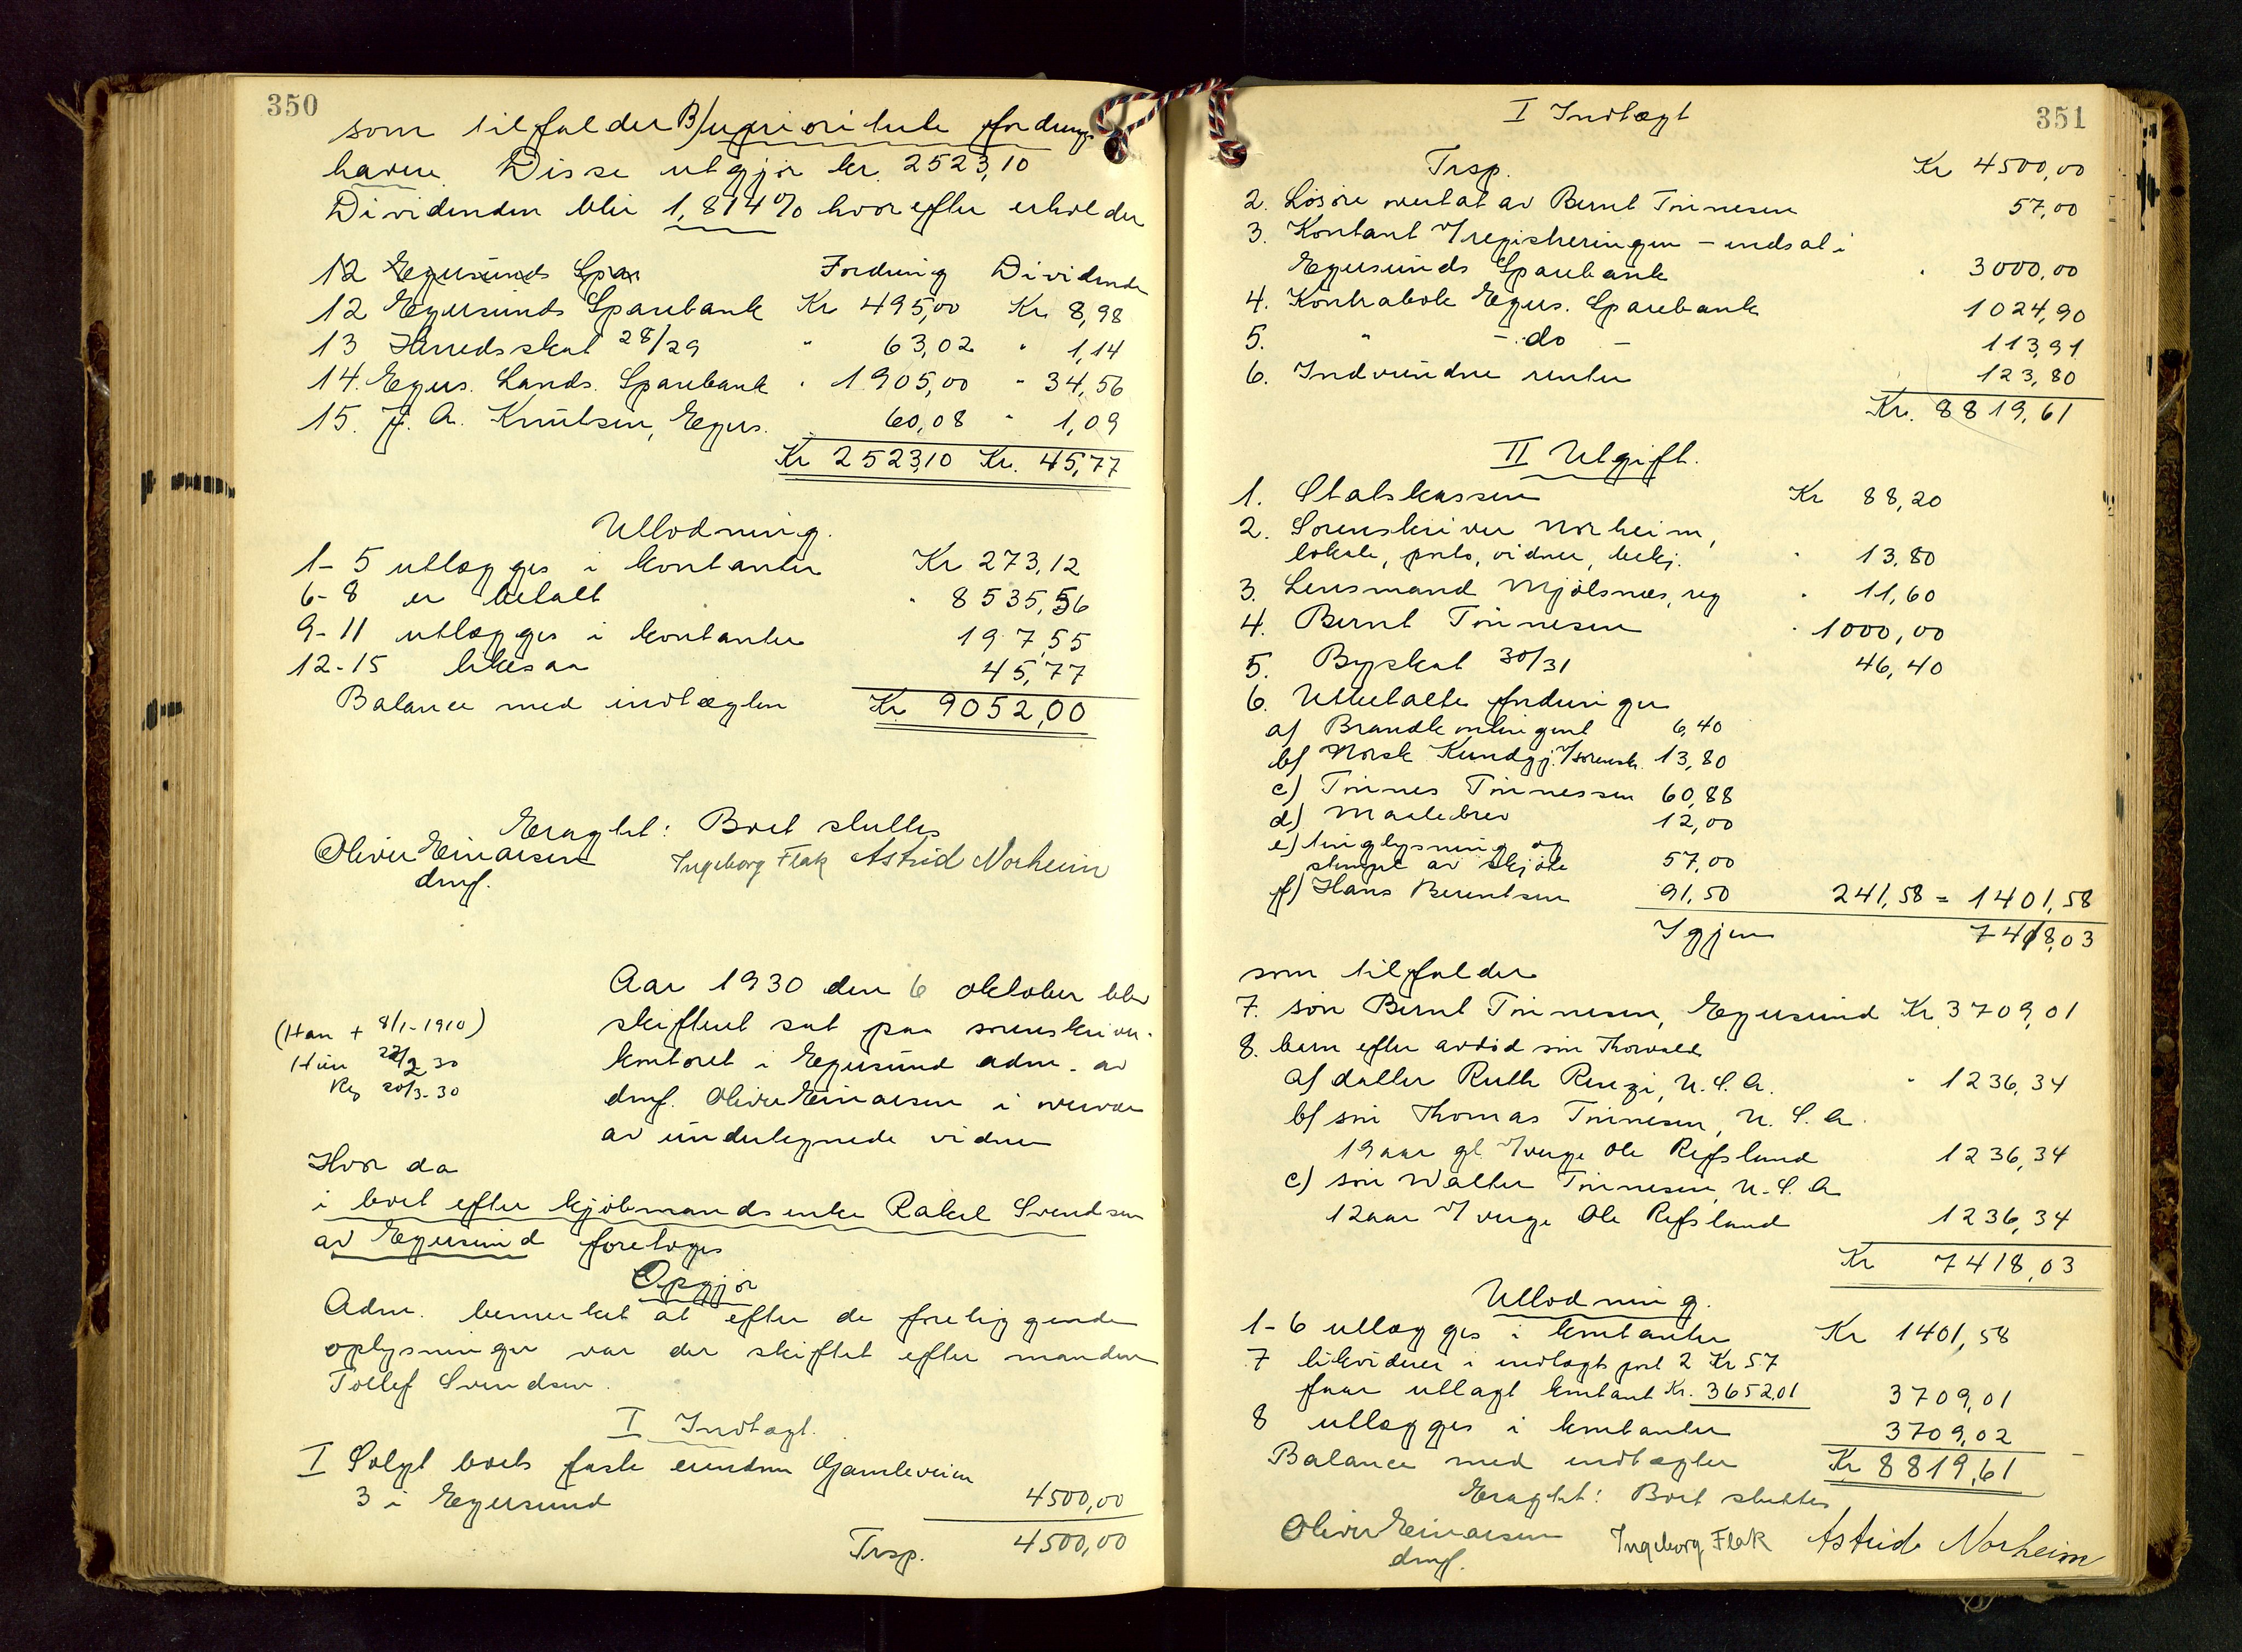 350
som tilfalder B/ uprioriterte fordrings
havere. Disse utgjør kr. 2523,10
Dividenden blir 1,814% hvorefter erholder
12 Egersunds Spar Fordring Dividende
12 Egersunds Sparebank Kr 495,00 Kr. 8,98
13 Herredsskat 28/29 " 63,02 " 1,14
14. Egers. Lands. Sparebank " 1905,00 " 34,56
15. J. A. Knutsen, Egers. 60,08 " 1,09
Kr 2523,10 Kr. 45,77
Utlodning.
1-5 utlægges i kontanter Kr 273,12
6-8 er betalt " 8535,56
9-11 utlægges i kontanter 197,55
12-15 likesaa 45,77
Balance med indtægten Kr 9052,00
Eragtet: Boet sluttes
Oliver Einarsen Ingeborg Flak Astrid Norheim
dmf.
Aar 1930 den 6 oktober blev
skifteret sat paa sorenskriver-
kontoret i Egersund adm. av
dmf. Oliver Einarsen i overvær
av undertegnede vidner
(Han + 8/1-1910)
Hun 22/2 30
Reg 20/3-30
Hvor da
i boet efter kjøbmandsenke Rakel Svendsen
av Egersund foretoges
Opgjør
Adm. bemerket at efter de foreliggende
oplysninger var der skiftet efter manden
Tollef Svendsen.
I Indtægt.
I Solgt boets faste eiendom Gamleveien
3 i Egersund 4500,00
Trsp. 4500,00
351
I Indtægt
Trsp. Kr 4500,00
2. Løsøre overtat av Bernt Tønnesen 57,00
3. Kontant v/registreringen - indsat i
Egersunds Sparebank " 3000,00
4. Kontrabok Egers. Sparebank 1024,90
5. " - do - 113,91
6. Indvundne renter 123,80
Kr. 8819,61
II Utgift.
1. Statskassen Kr 88,20
2. Sorenskriver Norheim,
lokale, porto, vidner, bekj. " 13,80
3. Lensmand Mjølsnes, reg " 11,60
4. Bernt Tønnesen " 1000,00
5. Byskat 30/31 46,40
6. Utbetalte fordringer
a) Brandkontingent 6,40
b) Norsk Kundgj. v/sorensk. 13,80
c) Tønnes Tønnessen 60,88
d) Maalebrev 12,00
e) tinglysning og
stempel av skjøte 57,00
f) Hans Berentsen 91,50 241,58 = 1401,58
Igjen 7418,03
som tilfalder
7. søn Bernt Tønnesen, Egersund Kr 3709,01
8. barn efter avdød søn Thorvald
a) datter Ruth Renzi, U.S.A. " 1236,34
b) søn Thomas Tønnesen, U.S.A.
19 aar gl v/verge Ole Refsland 1236,34
c) søn Walter Tønnesen, U.S.A
12 aar v/verge Ole Refsland 1236,34
Kr 7418,03
Utlodning.
1-6 utlægges i kontanter Kr 1401,58
7 likviderer i indtægt post 2 Kr 57
faar utlagt kontant Kr. 3652,01 3709,01
8 utlægges i kontanter 3709,02
Balance med indtægten Kr 8819,61
Eragtet: Boet sluttes
Oliver Einarsen Ingeborg Flak Astrid Norheim
dmf.